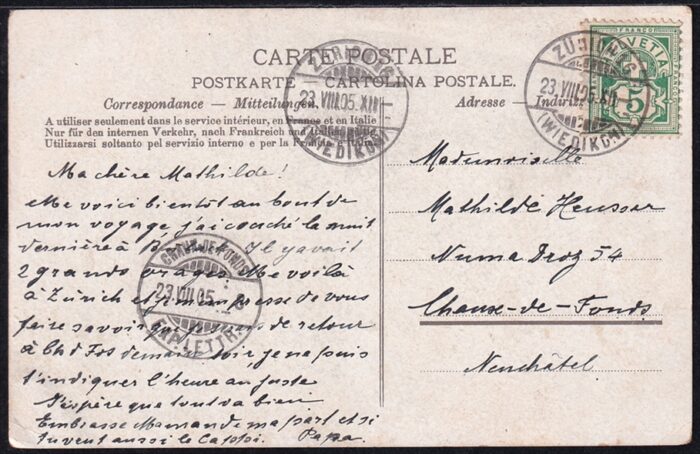 CARTE POSTALE
POSTKARTE — CARTOLINA POSTALE.
Correspondance — Mitteilungen
Adresse — Indirizzo
A utiliser seulement dans le service intérieur, en France et en Italie
Nur für den internen Verkehr, nach Frankreich und Italien
Utilizzarsi soltanto pel servizio interno e per la Francia e Italia
ZÜRICH
23.VIII.05.XII
(WIEDIKON)
ZÜRICH
23.VIII.05.XII
(WIEDIKON)
FRANCO
HELVETIA
5
Ma chère Mathilde!
Me voici bientôt au bout de
mon voyage, j'ai couché la nuit
dernière à Il y avait
2 grands orages. Me voilà
à Zürich et je m'empresse de vous
faire savoir que je suis de retour
à Chd Fds demain soir, je ne puis
t'indiquer l'heure au juste
J'espère que tout va bien
Embrasse Maman de ma part et si
tu veut aussi le Papa.
CHAUX-DE-FONDS
23.VIII.05
EXP. LETTR.
Mademoiselle
Mathilde Heusser
Numa Droz 54
Chaux-de-Fonds
Neuchâtel